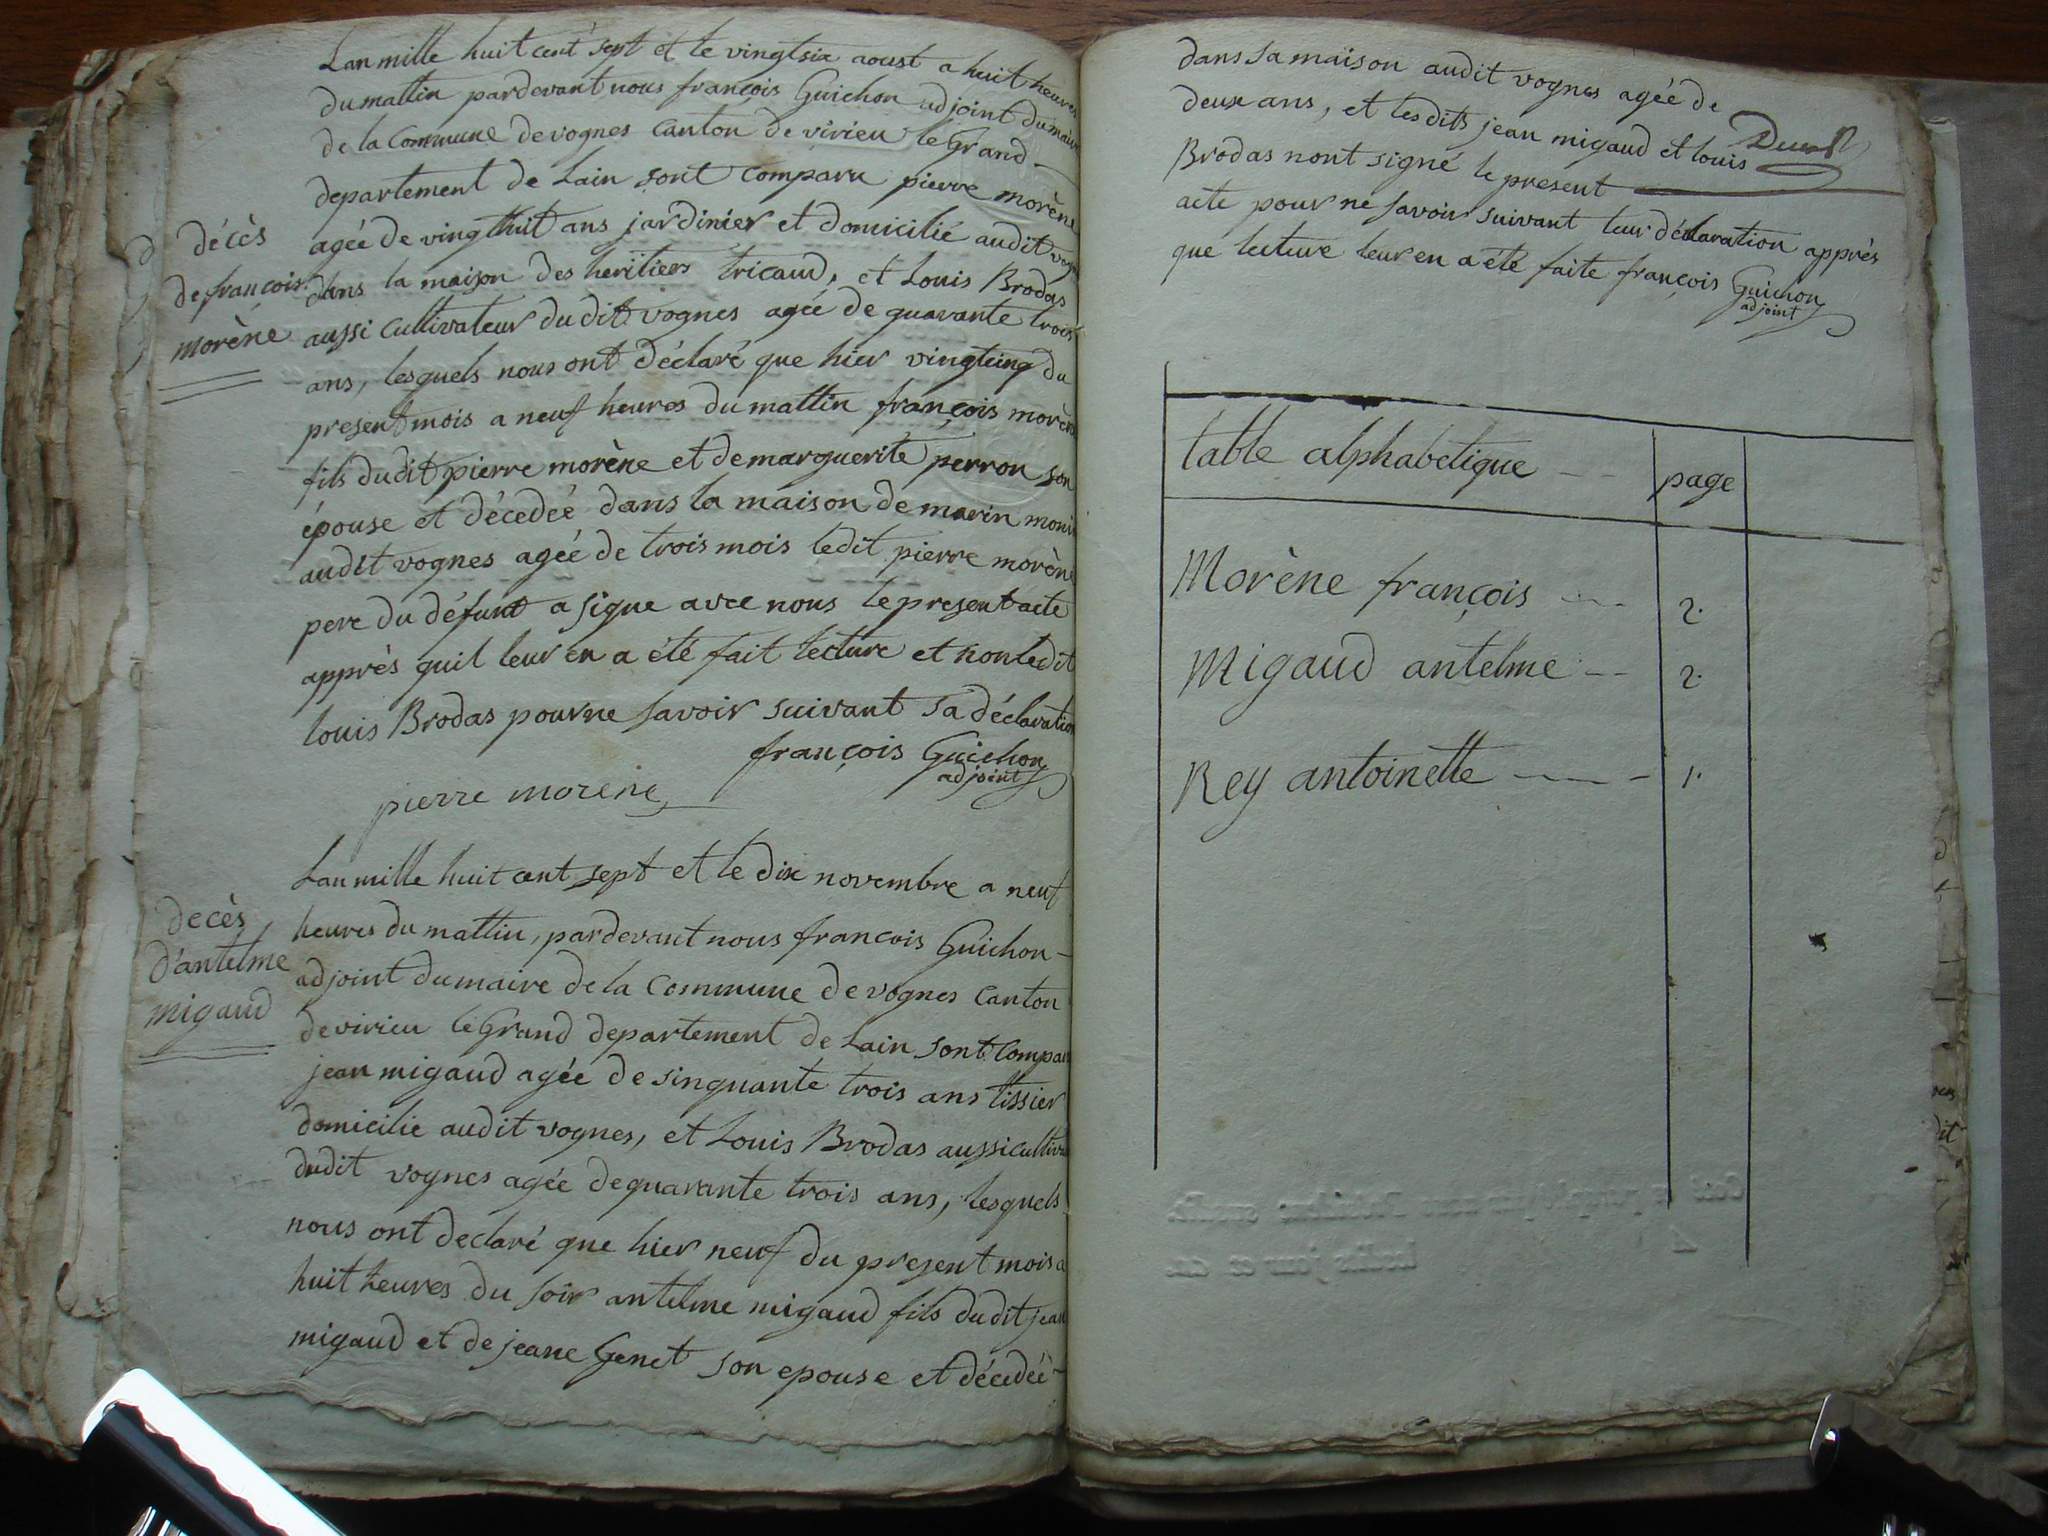 Lan mille huit cent sept et le vingtsix aoust a huit heures
du mattin pardevant nous françois Guichon adjoint du maire
de la Commune de vognes canton de virieu le Grand
departement de Lain sont comparu pierre morène
agée de vingthuit ans jardinier et domicilié audit
décès
de françois
morène
dans la maison des heritiers tricaud, et Louis Brodas
aussi cultivateur dudit vognes agée de quarante trois
ans, lesquels nous ont déclaré que hier vingtcinq du
present mois a neuf heures du mattin françois morène
fils dudit pierre morène et de marguerite perron son
épouse et décedéé dans la maison de marin
audit vognes agée de trois mois ledit pierre morène
pere du défunt a signe avec nous le present acte
apprès quil leur en a été fait lecture et non ledit
louis Brodas pour ne savoir suivant sa déclaration
françois Guichon
adjoint
pierre morene
Lan mille huit cent sept et le dix novembre a neuf
decès
d'antelme
migaud
heures du mattin, pardevant nous francois Guichon
adjoint du maire de la Commune de vognes Canton
de virieu le Grand departement de Lain sont
jean migaud agée de sinquante trois ans tissier
domicilie audit vognes, et Louis Brodas aussi
dudit vognes agée de quarante trois ans, lesquels
nous ont declaré que hier neuf du present mois a
huit heures du soir antelme migaud fils dudit jean
migaud et de jeane Genet son epouse et décedéé
dans sa maison audit vognes agée de
deux ans, et lesdits jean migaud et louis
Brodas nont signé le present
acte pour ne savoir suivant leur déclaration apprès
que lecture leur en a été faite françois Guichon
adjoint
table alphabetique page
Morène françois 2.
Migaud antelme 2.
Rey antoinette 1.